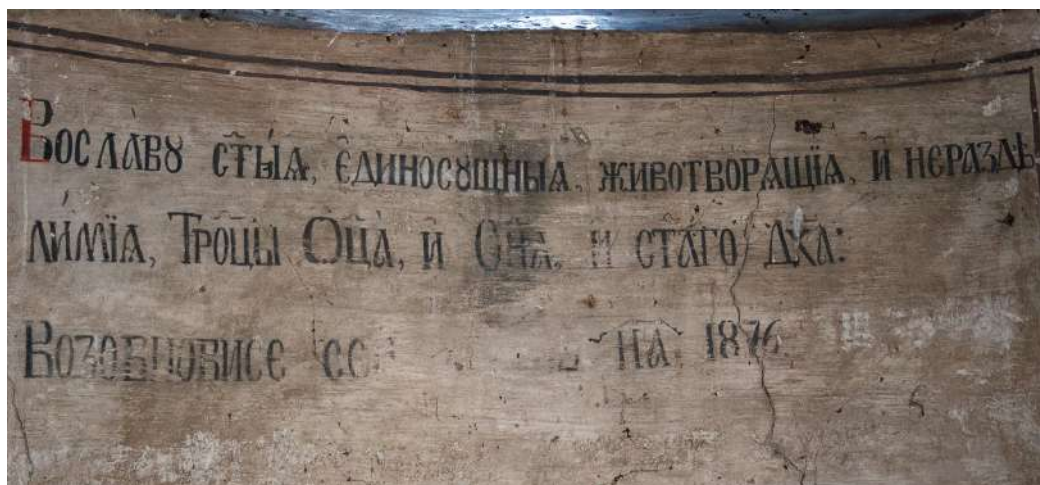 Вославꙋ ст҃ыѧ, єдиносꙋщныѧ, животворѧщїѧ, и нераздѣ
лимїѧ, Троцы Оц҃а, и Сн҃а, и ста҃го Дх҃а:
Возобновисе на 1876